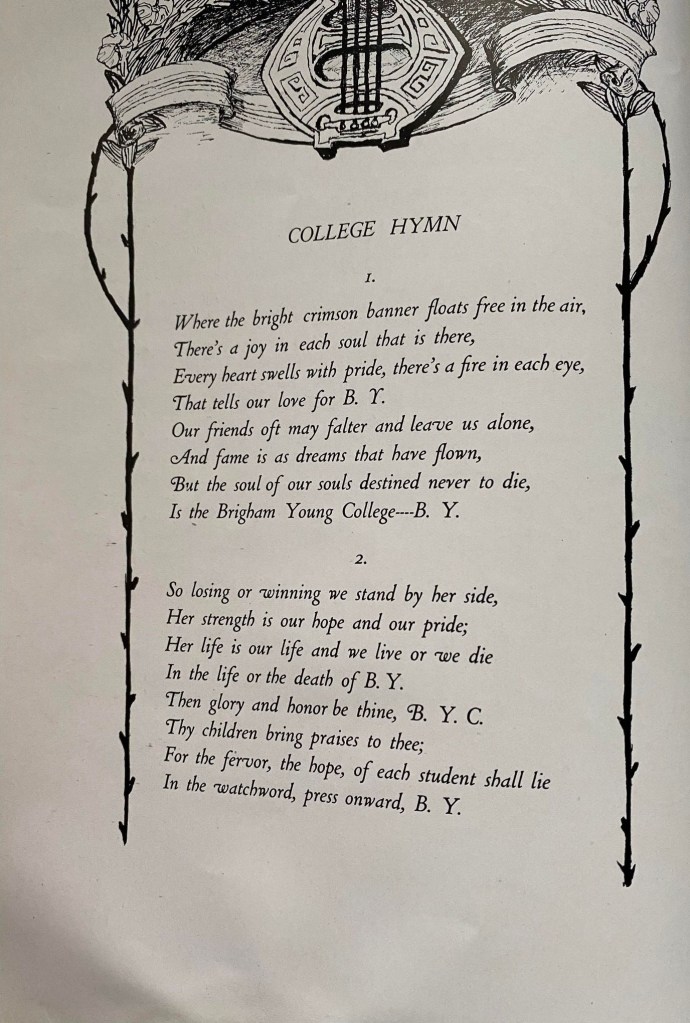 COLLEGE HYMN
1.
Where the bright crimson banner floats free in the air,
There's a joy in each soul that is there,
Every heart swells with pride, there's a fire in each eye,
That tells our love for B. Y.
Our friends oft may falter and leave us alone,
And fame is as dreams that have flown,
But the soul of our souls destined never to die,
Is the Brigham Young College----B. Y.
2.
So losing or winning we stand by her side,
Her strength is our hope and our pride;
Her life is our life and we live or we die
In the life or the death of B. Y.
Then glory and honor be thine, B. Y. C.
Thy children bring praises to thee;
For the fervor, the hope, of each student shall lie
In the watchword, press onward, B. Y.